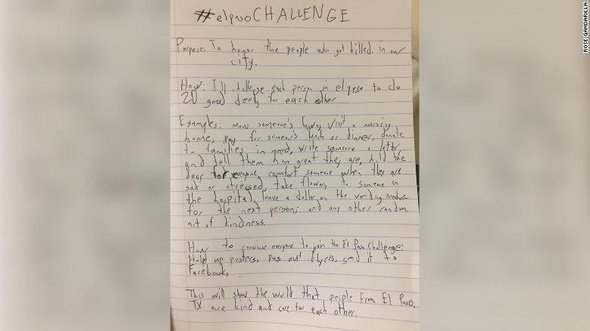 #elpasoCHALLENGE
Purpose: To honor the people who got killed in our
city.
How: I'll challenge each person in el paso to do
20 good deeds for each other
Examples: mow someone's lawn, visit a nursing
home, pay for someone's lunch or dinner, donate
to families in need, write someone a letter
and tell them how great they are, hold the
door for everyone, comfort someone when they are
sad or stressed, take flowers to someone in
the hospital, leave a dollar on the vending machine
for the next person, and any other random
act of kindness.
How to convince everyone to join the El Paso Challenge:
Hold up posters, pass out flyers, send it to
Facebook.
This will show the world that people from El Paso,
TX are kind and care for each other.
ROSE GANDARILLA